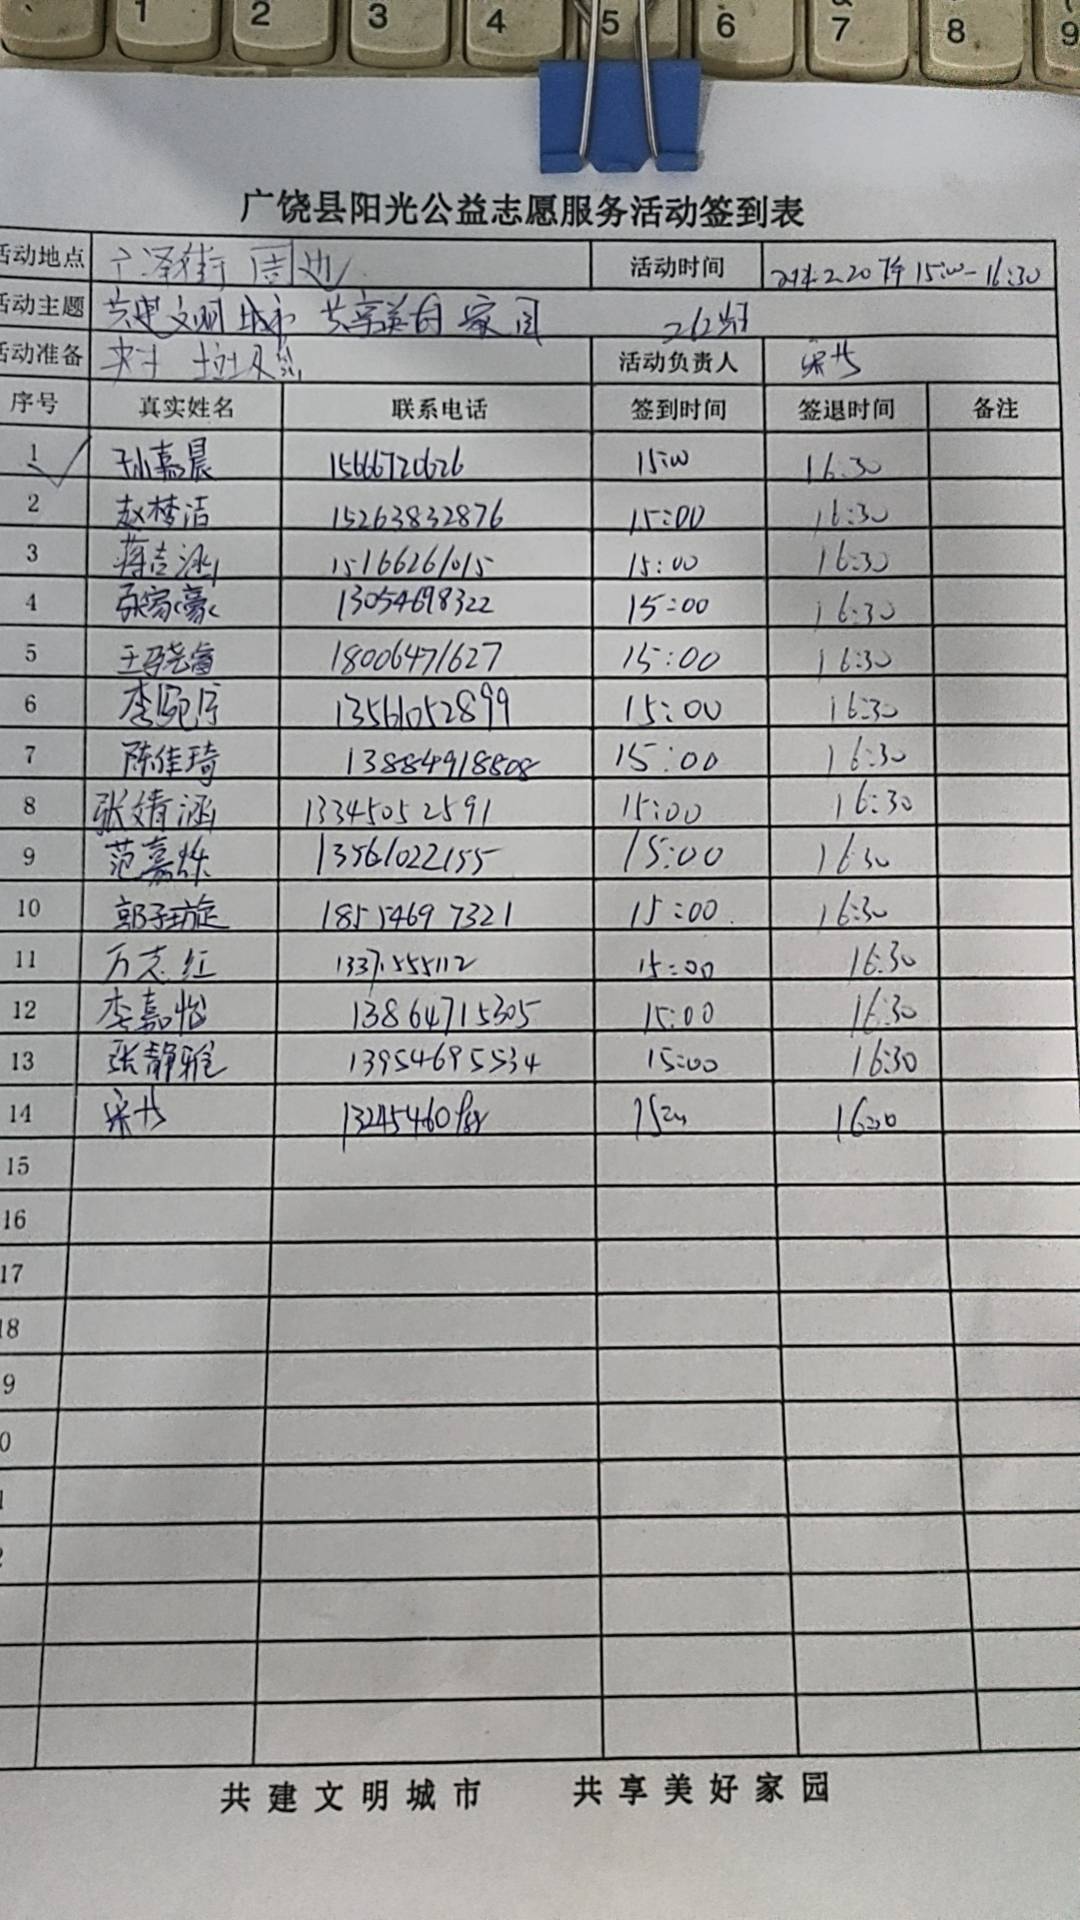 1 2 3 4 5 6 7 8 9
广饶县阳光公益志愿服务活动签到表
活动地点 广泽街 周边 活动时间 2.20 下午 15:00-16:30
活动主题 共建文明城市 共享美好家园
活动准备 夹子 垃圾袋 活动负责人
序号 真实姓名 联系电话 签到时间 签退时间 备注
1 孙嘉晨 15666720626 15:00 16:30
2 赵梦洁 15263832876 15:00 16:30
3 蒋吉涵 15166261015 15:00 16:30
4 张家豪 13054698322 15:00 16:30
5 18006471627 15:00 16:30
6 李 13561052899 15:00 16:30
7 陈佳琦 13884918808 15:00 16:30
8 张婧涵 13345052591 15:00 16:30
9 范嘉烁 13561022155 15:00 16:30
10 郭子璇 18554697321 15:00 16:30
11 万志红 15:00 16:30
12 李嘉怡 13864715305 15:00 16:30
13 张静雅 13954695534 15:00 16:30
14
15
16
17
18
9
0
1
2
共建文明城市 共享美好家园